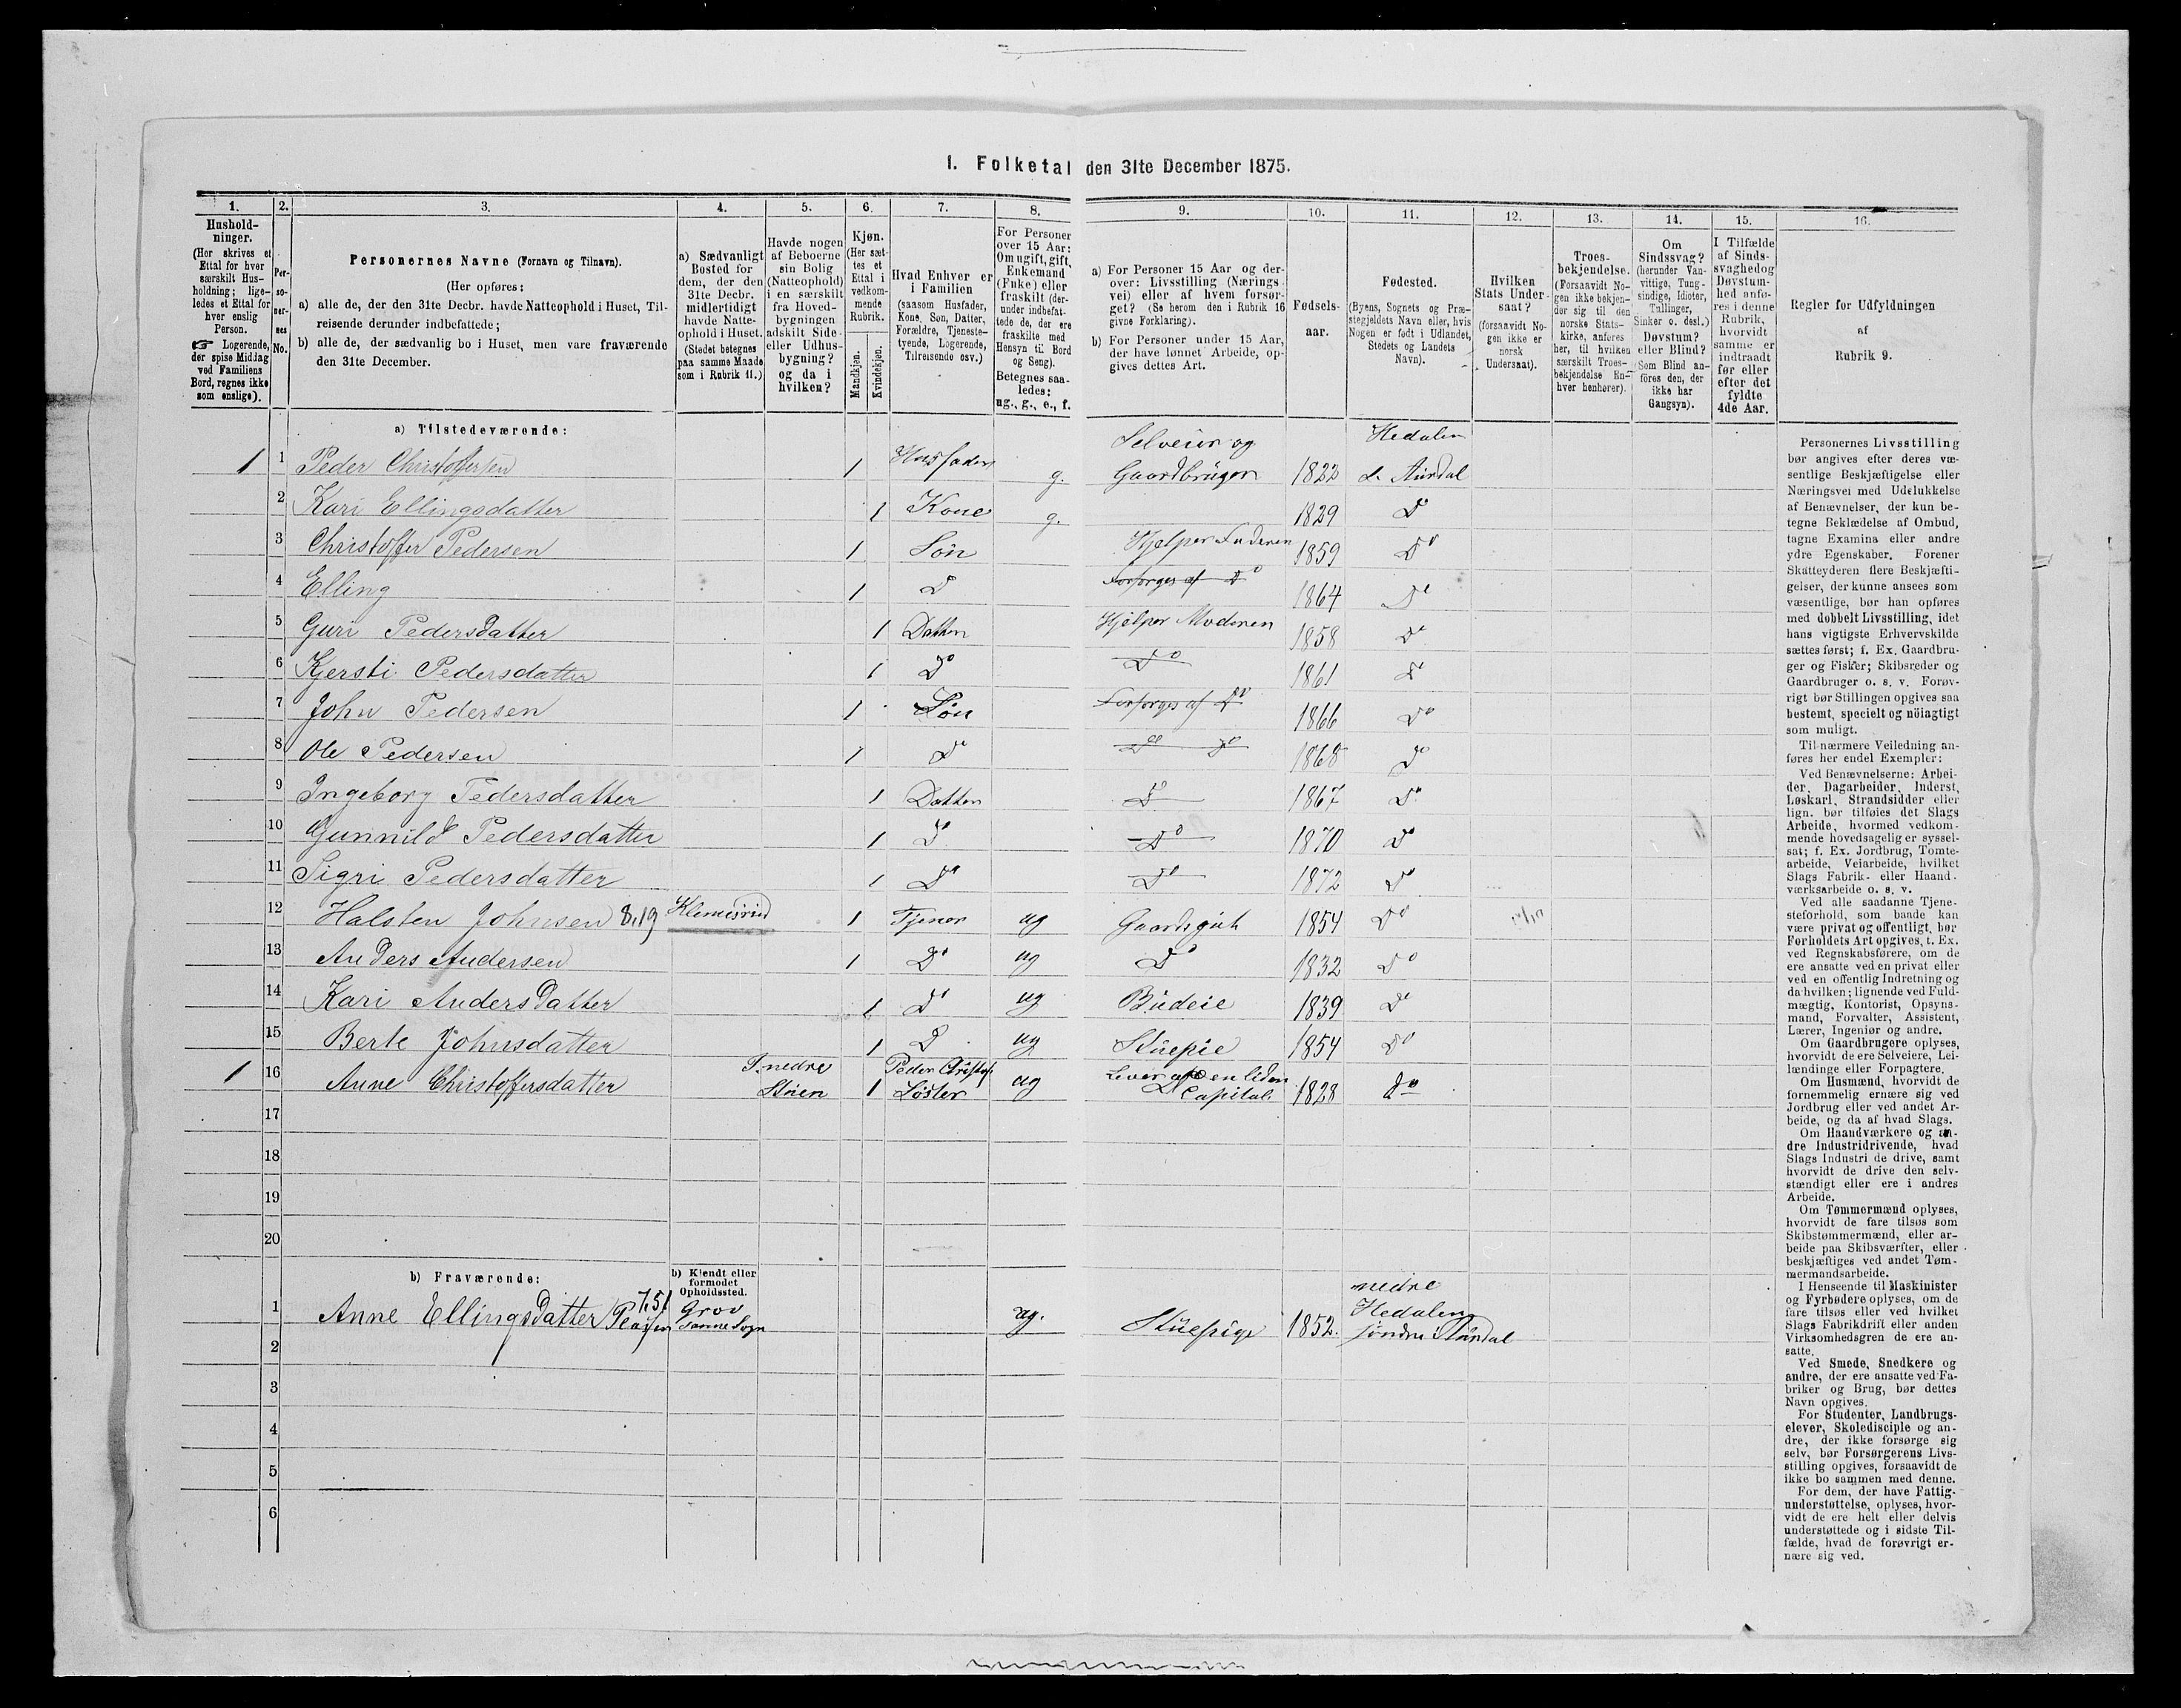 I. Folketal den 31te December 1875.
1. 2. 3. 4. 5. 6. 7. 8. 9. 10. 11. 12. 13. 14. 15. 16.
Hushold-
ninger.
(Her skrives et
Ettal for hver
særskilt Hus-
holdning; lige-
ledes et Ettal for
hver enslig
Person.
☞ Logerende,
der spise Middag
ved Familiens
Bord, regnes ikke
som enslige).
Per-
so-
ner-
nes
No.
Personernes Navne (Fornavn og Tilnavn).
(Her opføres:
a) alle de, der den 31te Decbr. havde Natteophold i Huset, Til-
reisende derunder indbefattede;
b) alle de, der sædvanlig bo i Huset, men vare fraværende
den 31te December.
a) Sædvanligt
Bosted for
dem, der den
31te Decbr.
midlertidigt
havde Natte-
ophold i Huset.
(Stedet betegnes
paa samme Maade
som i Rubrik 11.)
Havde nogen
af Beboerne
sin Bolig
(Natteophold)
i en særskilt
fra Hoved-
bygningen
adskilt Side-
eller Udhus-
bygning?
og da i
hvilken?
Kjøn.
(Her sæt-
tes et
Ettal i
vedkom-
mende
Rubrik.
Mandkjøn.
Kvindekjøn.
Hvad Enhver er
i Familien
(saasom Husfader,
Kone, Søn, Datter,
Forældre, Tjeneste-
tyende, Logerende,
Tilreisende osv.)
For Personer
over 15 Aar:
Om ugift, gift,
Enkemand
(Enke) eller
fraskilt (der-
under indbefat-
tede de, der ere
fraskilte med
Hensyn til Bord
og Seng).
Betegnes saa-
ledes:
ug., g., e., f.
a) For Personer 15 Aar og der-
over: Livsstilling (Nærings-
vei) eller af hvem forsør-
get? (Se herom den i Rubrik 16
givne Forklaring).
b) For Personer under 15 Aar,
der have lønnet Arbeide, op-
gives dettes Art.
Fødsels-
aar.
Fødested.
(Byens, Sognets og Præ-
stegjeldets Navn eller, hvis
Nogen er født i Udlandet,
Stedets og Landets
Navn).
Hvilken
Stats Under-
saat?
(forsaavidt No-
gen ikke er
norsk
Undersaat).
Troes-
bekjendelse.
(Forsaavidt No-
gen ikke bekjen-
der sig til den
norske Stats-
kirke, anføres
her, til hvilken
særskilt Troes-
bekjendelse En-
hver henhører).
Om
Sindssvag?
(herunder Van-
vittige, Tung-
sindige, Idioter,
Tullinger,
Sinker o. desl.)
Døvstum?
eller Blind?
(Som Blind an-
føres den, der
ikke har
Gangsyn).
I Tilfælde
af Sinds-
svaghed og
Døvstum-
hed anfø-
res i denne
Rubrik,
hvorvidt
samme er
indtraadt
før eller
efter det
fyldte
4de Aar.
Regler for Udfyldningen
af
Rubrik 9.
a) Tilstedeværende:
Selveier og Hedalen
1 1 Peder Christoffersen 1 Husfader g. Gaardbruger 1822 S. Aurdal
2 Kari Ellingsdatter 1 Kone g. 1829 Do
3 Christoffer Pedersen 1 Søn Hjelper Faderen 1859 Do
4 Elling 1 Do Forsørges af Do 1864 Do
5 Guri Pedersdatter 1 Datter Hjelper Moderen 1858 Do
6 Kjersti Pedersdatter 1 Do Do 1861 Do
7 John Pedersen 1 Søn Forsørges af Do 1866 Do
8 Ole Pedersen 1 Do Do Do 1868 Do
9 Ingeborg Pedersdatter 1 Datter Do 1867 Do
10 Gunnild Pedersdatter 1 Do Do 1870 Do
11 Sigri Pedersdatter 1 Do Do 1872 Do
12 Halsten Johnsen 8,19 Klemisrud 1 Tjener ug Gaardsgut 1854 Do
13 Anders Andersen 1 Do ug Do 1832 Do
14 Kari Andersdatter 1 Do ug Budeie 1839 Do
15 Berte Johnsdatter 1 D ug Stuepie 1854 Do
nedre Peder Christof Lever af en liden
1 16 Anne Christoffersdatter Stuen 1 Søster ug Capital. 1828 Do
17
18
19
20
b) Fraværende:
b) Kjendt eller
formodet
Opholdssted.
nedre
7,51 Grov Hedalen
1 Anne Ellingsdatter Samme Sogn ug. Stuepige 1852. søndre Aurdal
2
3
4
5
6
Personernes Livsstilling
bør angives efter deres væ-
sentlige Beskjæftigelse eller
Næringsvei med Udelukkelse
af Benævnelser, der kun be-
tegne Beklædelse af Ombud,
tagne Examina eller andre
ydre Egenskaber. Forener
Skatteyderen flere Beskjæfti-
gelser, der kunne ansees som
væsentlige, bør han opføres
med dobbelt Livsstilling, idet
hans vigtigste Erhvervskilde
sættes først; f. Ex. Gaardbru-
ger og Fisker; Skibsreder og
Gaardbruger o. s. v. Forøv-
rigt bør Stillingen opgives saa
bestemt, specielt og nöiagtigt
som muligt.
Til nærmere Veiledning an-
føres her endel Exempler:
Ved Benævnelserne: Arbei-
der, Dagarbeider, Inderst,
Løskarl, Strandsidder eller
lign. bør tilføies det Slags
Arbeide, hvormed vedkom-
mende hovedsagelig er syssel-
sat; f. Ex. Jordbrug, Tomte-
arbeide, Veiarbeide, hvilket
Slags Fabrik- eller Haand-
værksarbeide o. s. v.
Ved alle saadanne Tjene-
steforhold, som baade kan
være privat og offentligt, bør
Forholdets Art opgives, t. Ex.
ved Regnskabsførere, om de
ere ansatte ved en privat eller
ved en offentlig Indretning og
da hvilken; lignende ved Fuld-
mægtig, Kontorist, Opsyns-
mand, Forvalter, Assistent,
Lærer, Ingeniør og andre.
Om Gaardbrugere oplyses,
hvorvidt de ere Selveiere, Lei-
lændinge eller Forpagtere.
Om Husmænd, hvorvidt de
fornemmelig ernære sig ved
Jordbrug eller ved andet Ar-
beide, og da af hvad Slags.
Om Haandværkere og an-
dre Industridrivende, hvad
Slags Industri de drive, samt
hvorvidt de drive den selv-
stændigt eller ere i andres
Arbeide.
Om Tømmermænd oplyses,
hvorvidt de fare tilsøs som
Skibstømmermænd, eller ar-
beide paa Skibsværfter, eller
beskjæftiges ved andet Tøm-
mermandsarbeide.
I Henseende til Maskinister
og Fyrbødere oplyses, om de
fare tilsøs eller ved hvilket
Slags Fabrikdrift eller anden
Virksomhedsgren de ere an-
satte.
Ved Smede, Snedkere og
andre, der ere ansatte ved Fa-
briker og Brug, bør dettes
Navn opgives.
For Studenter, Landbrugs-
elever, Skoledisciple og an-
dre, der ikke forsørge sig
selv, bør Forsørgerens Livs-
stilling opgives, forsaavidt de
ikke bo sammen med denne.
For dem, der have Fattig-
understøttelse, oplyses, hvor-
vidt de ere helt eller delvis
understøttede og i sidste Til-
fælde, hvad de forøvrigt er-
nære sig ved.